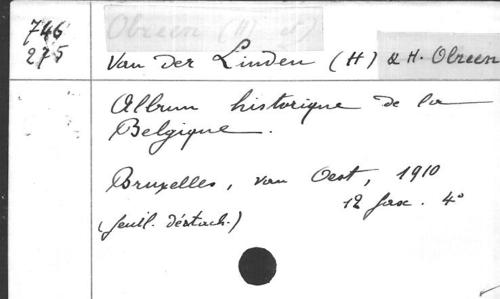 746
275
Obreen (H) et
Van der Linden (H) & H. Obreen
Album historique de la
Belgique.
Bruxelles, van Oest, 1910
12 fasc. 4°
(feuil. détach.)